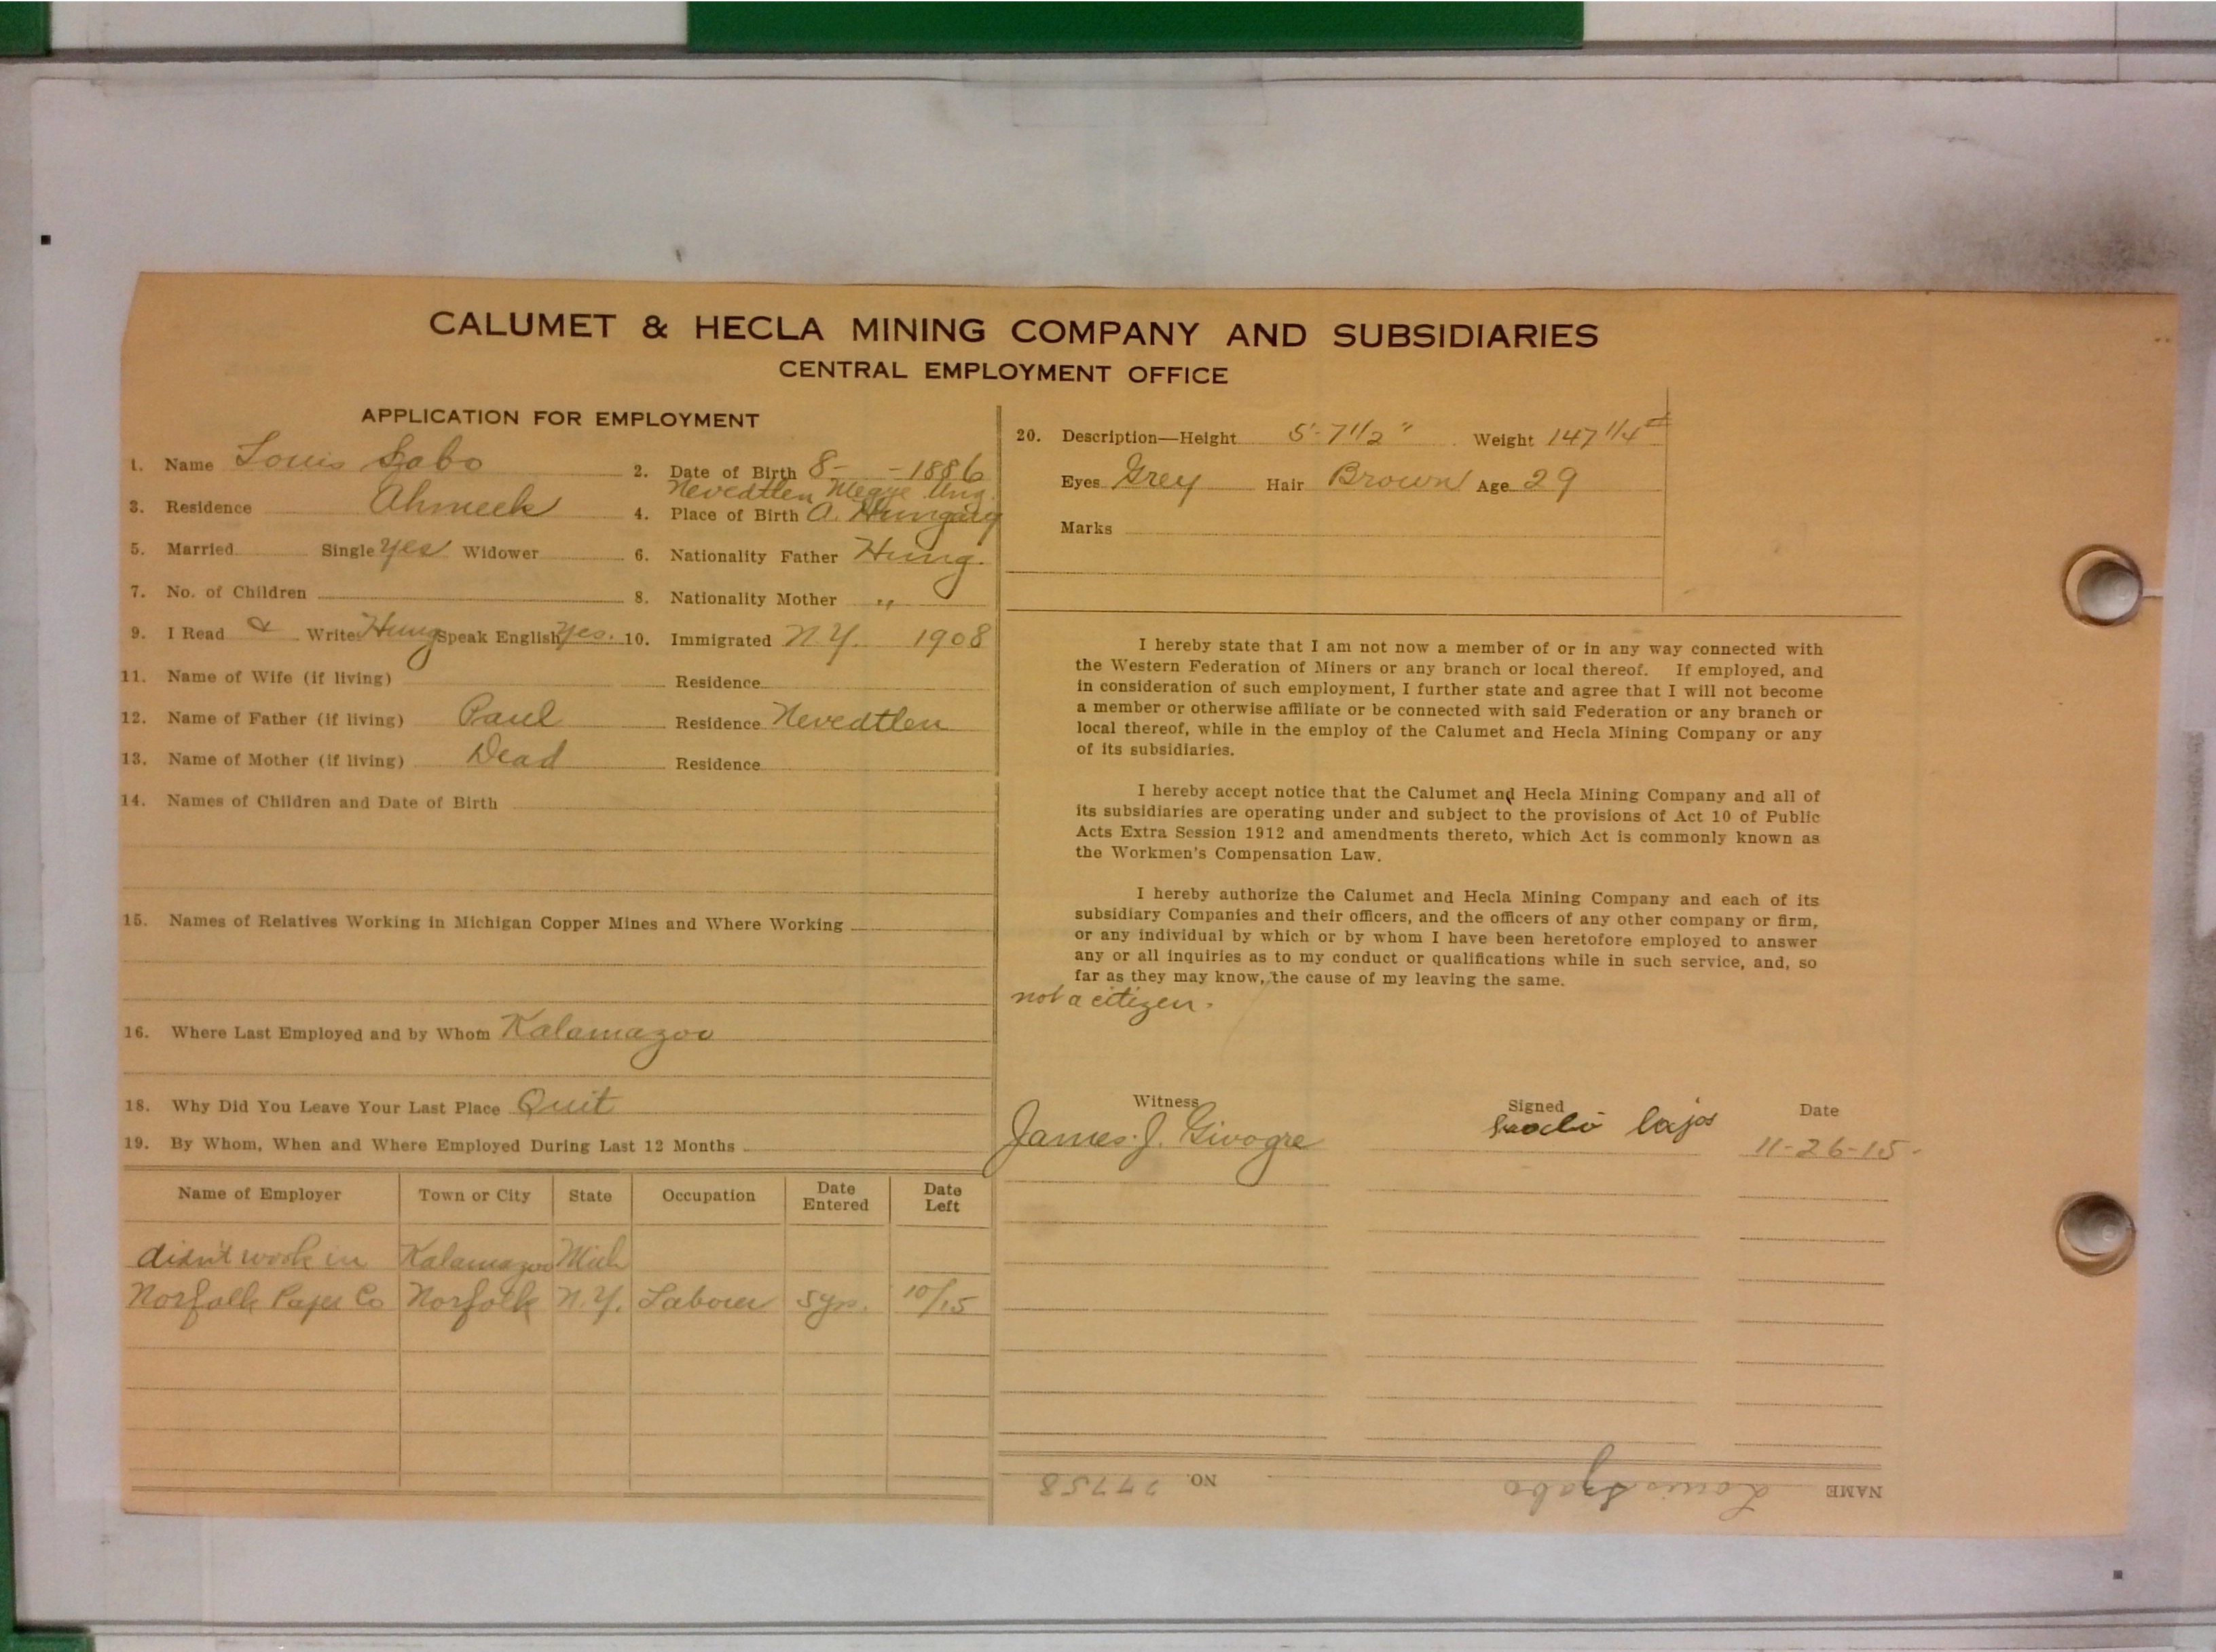 CALUMET & HECLA MINING COMPANY AND SUBSIDIARIES
CENTRAL EMPLOYMENT OFFICE
APPLICATION FOR EMPLOYMENT
1. Name Louis Szabo 2. Date of Birth 8- -1886
Nevedtlen Megye Ung.
3. Residence Ahmeek 4. Place of Birth A. Hungary
5. Married Single yes Widower 6. Nationality Father Hung.
7. No. of Children 8. Nationality Mother "
9. I Read & Write Hung Speak English yes. 10. Immigrated N.Y. 1908
11. Name of Wife (if living) Residence
12. Name of Father (if living) Paul Residence Nevedtlen
13. Name of Mother (if living) Dead Residence
14. Names of Children and Date of Birth
15. Names of Relatives Working in Michigan Copper Mines and Where Working
16. Where Last Employed and by Whom Kalamazoo
18. Why Did You Leave Your Last Place Quit
19. By Whom, When and Where Employed During Last 12 Months
Name of Employer Town or City State Occupation Date Entered Date Left
didn't work in Kalamazoo Mich
Norfolk Paper Co Norfolk N.Y. Laborer 5 yrs. 10/15
20. Description—Height 5'-7 1/2" Weight 147 1/4 #
Eyes Grey Hair Brown Age 29
Marks
I hereby state that I am not now a member of or in any way connected with
the Western Federation of Miners or any branch or local thereof. If employed, and
in consideration of such employment, I further state and agree that I will not become
a member or otherwise affiliate or be connected with said Federation or any branch or
local thereof, while in the employ of the Calumet and Hecla Mining Company or any
of its subsidiaries.
I hereby accept notice that the Calumet and Hecla Mining Company and all of
its subsidiaries are operating under and subject to the provisions of Act 10 of Public
Acts Extra Session 1912 and amendments thereto, which Act is commonly known as
the Workmen's Compensation Law.
I hereby authorize the Calumet and Hecla Mining Company and each of its
subsidiary Companies and their officers, and the officers of any other company or firm,
or any individual by which or by whom I have been heretofore employed to answer
any or all inquiries as to my conduct or qualifications while in such service, and, so
far as they may know, the cause of my leaving the same.
not a citizen.
Witness Signed Date
James J. Givogre lajos 11-26-15.
NAME Louis Szabo NO. 27758